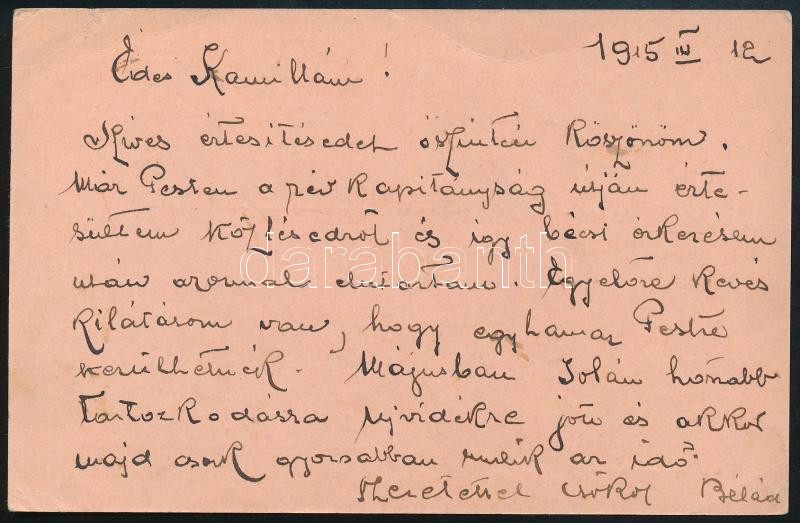 1915 III 12
Édes Kamillám!
Kives értesitésedet őszintén köszönöm.
Már Pesten a rév kapitányság útján érte-
sültem közlésedről és igy bécsi érkezésem
után azonnal elutaztam. Egyelőre kevés
kilátásom van, hogy egyhamar Pestre
kerülhetnék. Májusban Jolán honabb
tartozkodásra Ujvidékre jön és akkor
majd csak gyorsabban mulik az idő.
Szeretettel csókol Bélád
darabanth